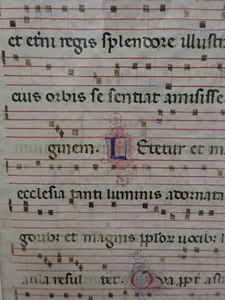 et etni regis splendore illustr
cuis orbis se sentiat amisisse
ginem. Letetur et m
ecclesia tanti luminis adornata
uocib
aula resultet.